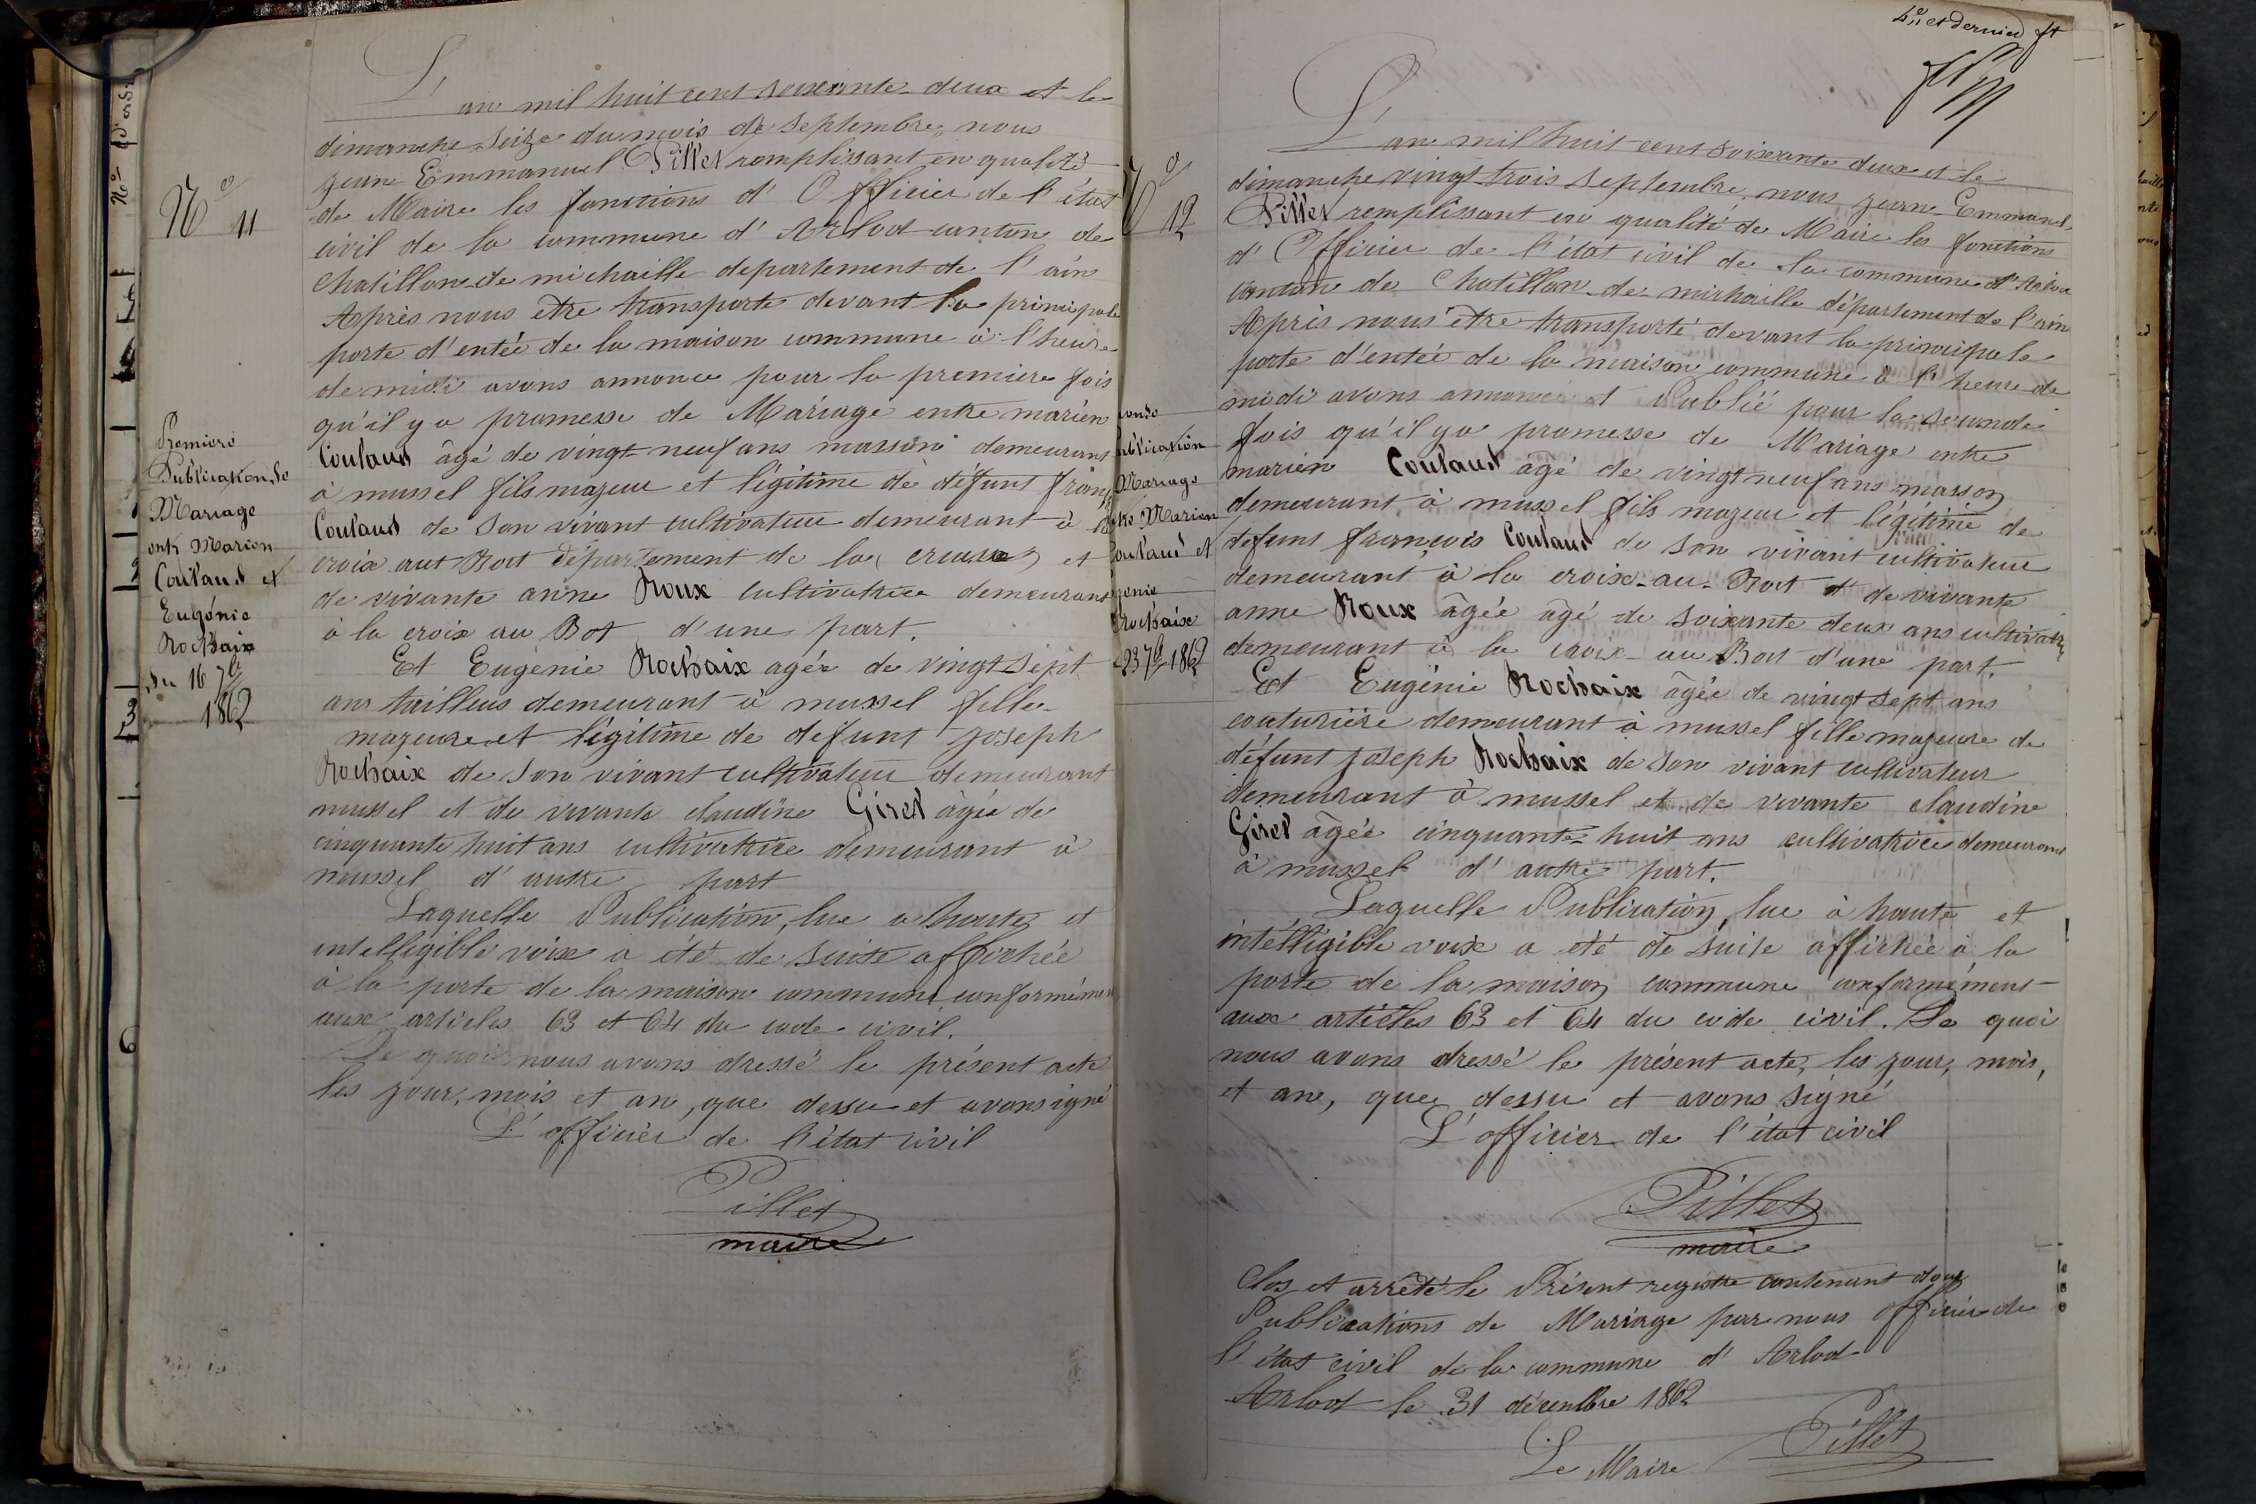 N° 11
Première
Publication de
Mariage
entre Marien
Coulaud et
Eugénie
Rochaix
du 16 7bre
1862
L'an mil huit cent soixante-deux et le
dimanche seize du mois de septembre, nous
jean Emmanuel Pillet remplissant en qualité
de Maire les fonctions d'Officier de l'état
civil de la commune d'Arlod canton de
Chatillon-de-michaille departement de l'ain
Après nous être transporte devant la principale
porte d'entée de la maison commune à l'heure
de midi avons annonce pour la premiere fois
qu'il y a promesse de Mariage entre marien
Coulaud âgé de vingt-neuf ans masson demeurant
à mussel fils majeur et légitime de défunt franç
Coulaud de son vivant cultivateur demeurant à
croix aut Bost département de la creuse, et
de vivante anne Roux cultivatrice demeurant
à la croix au Bot d'une part.
Et Eugénie Rochaix agée de vingt sept
ans tailleus demeurant à mussel fille
majeure et légitime de défunt joseph
Rochaix de son vivant cultivateur demeurant
mussel et de vivante claudine Giret âgée de
cinquante huit ans cultivatrice demeurant à
mussel d'autre part
Laquelle Publication, lue a haute et
intelligible voix a été de suite affichée
à la porte de la maison commune conformémen
aux articles 63 et 64 du code civil.
De quoi nous avons dressé le présent acte
les jour, mois et an, que dessu et avons igné
L'officier de l'état civil
Pillet
maire
4e et dernier ft
N° 12
conde
ublication
Mariage
tre Marien
oulaud et
génie
Rochaix
23 7b 1862
L'an mil huit cent soixante deux et le
dimanche vingt trois septembre, nous jean-Emmanuel
Pillet remplissant en qualité de Maire les fonctions
d'Officier de l'état civil de la commune d'Arlod
canton de Chatillon-de-michaille département de l'ain
Après nous être transporté devant la principale
porte d'entée de la maison commune à l'heure de
midi avons annoncer et Publié pour la seconde
fois qu'il y a promesse de Mariage entre
marien Coulaud âgé de vingt neuf ans masson
demeurant à mussel fils majeur et légitime de
defunt françois Coulaud de son vivant cultivateur
demeurant à la croix-au-Bost et de vivante
anne Roux âgée âgé de soixante deux ans cultivatrice
demeurant à la croix-au Bost d'une part.
Et Eugénie Rochaix âgée de vingt sept ans
couturière demeurant à mussel fille majeure de
défunt joseph Rochaix de son vivant cultivateur
demeurant à mussel et de vivante claudine
Giret âgée cinquante-huit ans cultivatrice demeurant
à mussel d'autre part.
Laquelle Publication, lue à haute et
intélligible voix a été de suite affichée à la
porte de la maison commune conformément
aux articles 63 et 64 du code civil. De quoi
nous avons dressé le présent acte, les jour, mois,
et an, que dessu et avons signé
L'officier de l'état civil
Pillet
maire
Clos et arrêté le Présent registre contenant douze
Publications de Mariage par nous officier de
l'état civil de la commune d'Arlod
Arlod le 31 décembre 1862
Le Maire Pillet